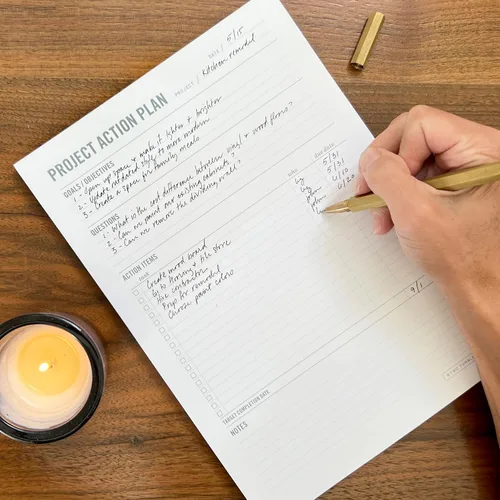 PROJECT ACTION PLAN
DATE / 5/15
PROJECT / Kitchen remodel
GOALS / OBJECTIVES
1 - Open up space & make it lighter + brighter
2 - Update outdated style to more modern
3 - Create a space for family meals
QUESTIONS
1 - What is the cost difference between vinyl & wood floors?
2 - Can we paint our existing cabinets?
3 - Can we remove the dividing wall?
ACTION ITEMS
TASK WHO DUE DATE
Create mood board 5/31
Go to flooring & tile store 5/31
Hire contractor 6/10
Prep for remodel 6/20
Choose paint colors
TARGET COMPLETION DATE 9/1
NOTES